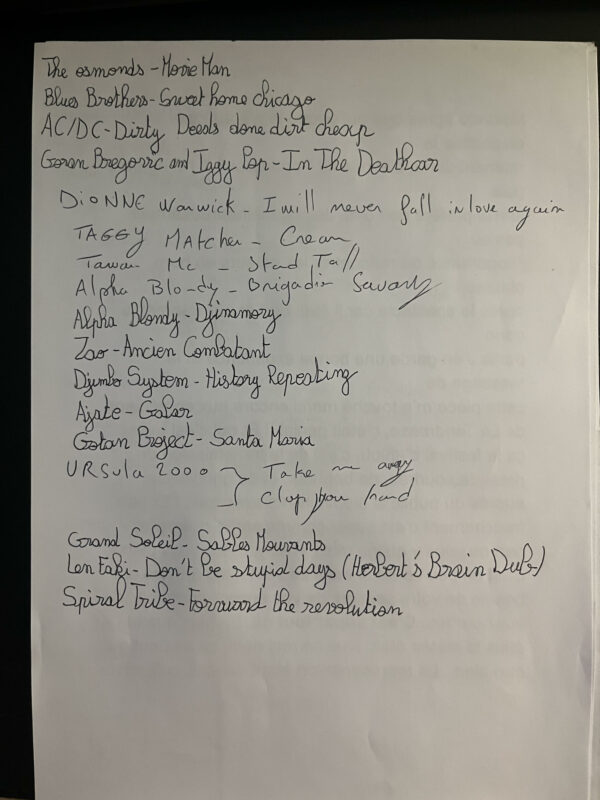 The osmonds - Movie Man
Blues Brothers - Sweet home chicago
AC/DC - Dirty Deeds done dirt cheap
Goran Bregovic and Iggy Pop - In The Deathcar
DIONNE Warwick - I will never fall in love again
TAGGY MATcher - Cream
Taiwan Mc - Stand Tall
Alpha Blondy - Brigadier Savary
Alpha Blondy - Djinamory
Zao - Ancien Combatant
Djumbo System - History Repeating
Ajate - Galar
Gotan Project - Santa Maria
URSula 2000 } Take me
Clap your hand
Grand Soleil - Sables Mouvants
Len Faki - Don't be stupid days (Herbert's Brain Dub)
Spiral Tribe - Forward the revolution